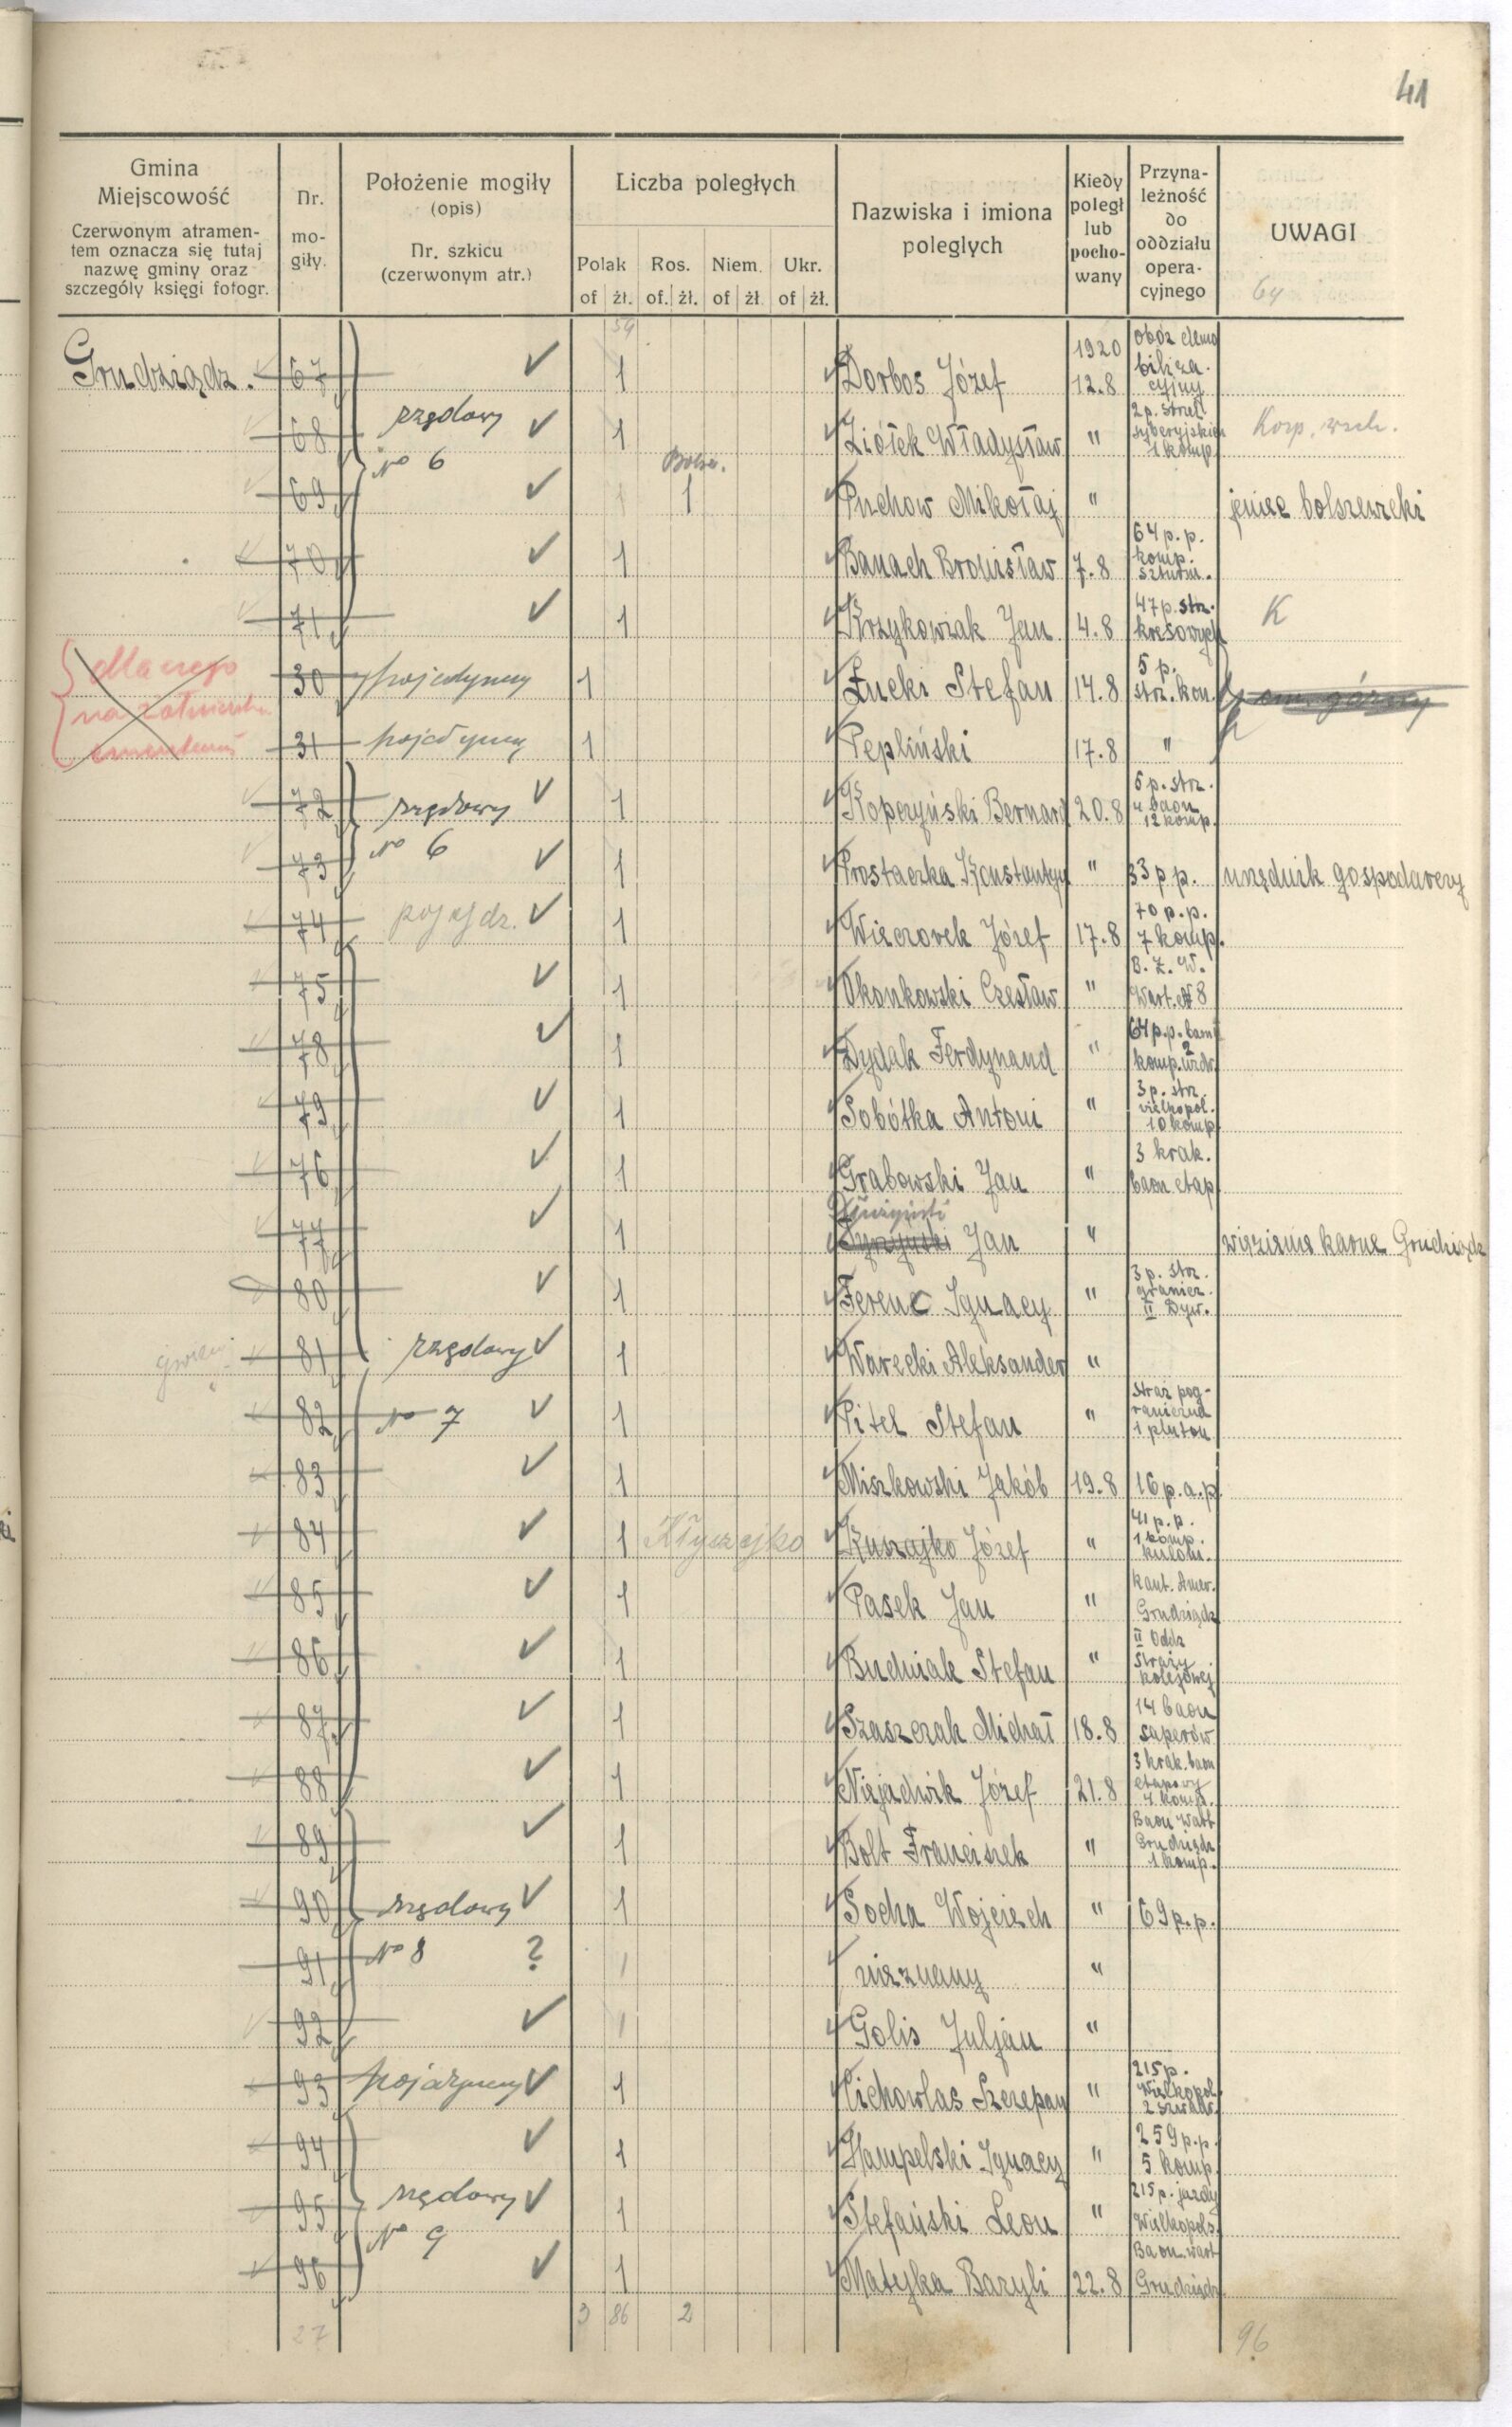 41
Gmina
Miejscowość
Czerwonym atramen-
tem oznacza się tutaj
nazwę gminy oraz
szczegóły księgi fotogr.
Nr.
mo-
giły.
Położenie mogiły
(opis)
Nr. szkicu
(czerwonym atr.)
Liczba poległych
Polak Ros. Niem. Ukr.
of żł. of. żł. of żł of żł.
Nazwiska i imiona
poległych
Kiedy
poległ
lub
pocho-
wany
Przyna-
leżność
do
oddziału
opera-
cyjnego
UWAGI
64
54
Grudziądz. 67 ✓ 1 Dorbos Józef 1920 12.8 obóz demo biliza- cyjny
68 rzędowy ✓ 1 Ziółek Władysław " 2 p. strzel. syberyjskich 1 komp. Korp. wsch.
69 No 6 ✓ Bolsz. 1 Puchow Mikołaj " jeniec bolszewicki
70 ✓ 1 Banach Bronisław 7.8 64 p.p. komp. szturm.
71 ✓ 1 Krzykowiak Jan 4.8 47 p. strz. kresowych K
dlaczego
na żołniersk.
cmentarz
30 pojedynczy 1 Żucki Stefan 14.8 5 p. strz. kon.
31 pojedynczy 1 Pepliński 17.8 "
72 rzędowy ✓ 1 Koperzyński Bernard 20.8 5 p. strz. 4 baon 12 komp.
73 No 6 ✓ 1 Prostaczka Konstantyn " 33 p.p. urzędnik gospodarczy
74 pojedz. ✓ 1 Wieczorek Józef 17.8 70 p.p. 7 komp.
75 ✓ 1 Okonkowski Czesław " B. Z. W. Wart. 8
78 ✓ 1 Dydak Ferdynand " 64 p.p. 2 komp.
79 ✓ 1 Sobótka Antoni " 3 p. strz. wielkopol. 10 komp
76 ✓ 1 Grabowski Jan " 3 krak. baon etap
77 ✓ 1 Jan " więzienie karne Grudziądz
80 ✓ 1 Ferenc Ignacy " 3 p. strz. granicz. II Dyw.
81 rzędowy ✓ 1 Warecki Aleksander "
82 No 7 ✓ 1 Pitel Stefan " straż pog- raniczna 1 pluton
83 ✓ 1 Miszkowski Jakób 19.8 16 p.a.p.
84 ✓ 1 Kłyczejko Kuszajko Józef " 41 p.p. 1 komp. kulom.
85 ✓ 1 Pasek Jan " Kant. Amer. Grudziądz
86 ✓ 1 Budniak Stefan " II Oddz Straży kolejowej
87 ✓ 1 Szaszczak Michał 18.8 14 baon saperów
88 ✓ 1 Niejadwik Józef 21.8 3 krak. baon etapowy 4 komp.
89 ✓ 1 Bolt Franciszek " Baon Wart Grudziądz 1 komp.
90 rzędowy ✓ 1 Socha Wojciech " 69 p.p.
91 No 8 ? 1 nieznany "
92 ✓ 1 Golis Juljan "
93 pojedynczy ✓ 1 Cichowlas Szczepan " 215 p. Wielkopol. 2 szwadr.
94 ✓ 1 Hampelski Ignacy " 259 p.p. 5 komp.
95 rzędowy ✓ 1 Stefański Leon " 215 p. jazdy Wielkopols.
96 No 9 ✓ 1 Matejka Bazyli 22.8 Baon wart Grudziądz.
27 3 86 2 96